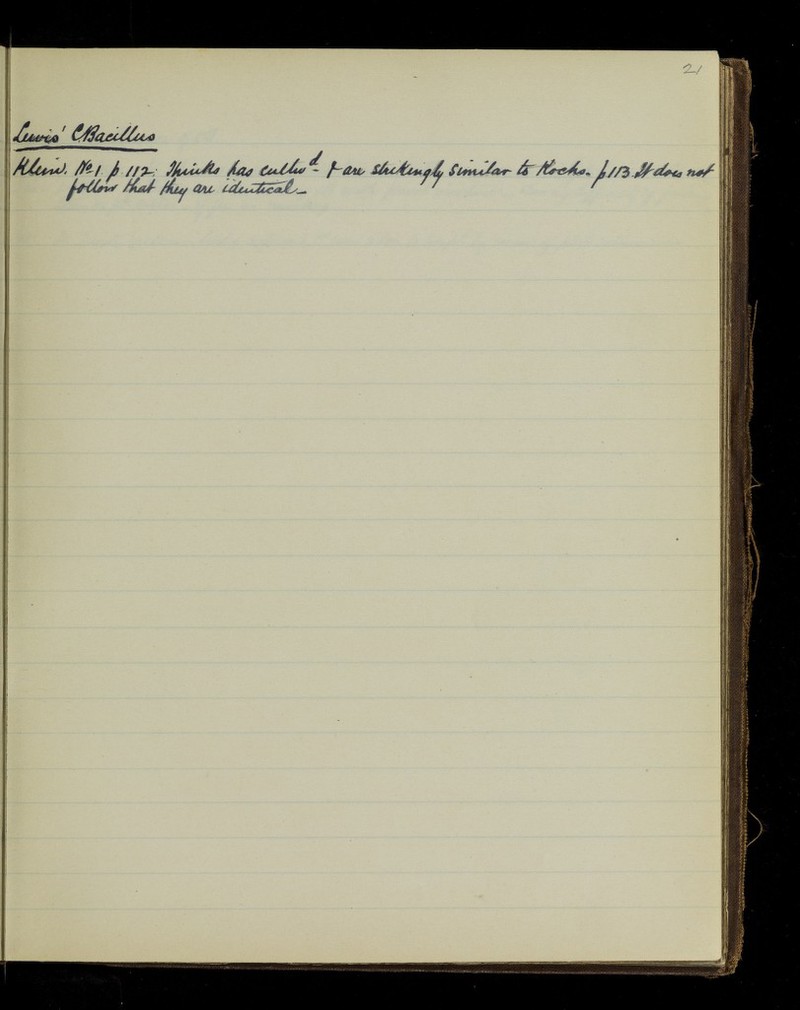 21
Lewis' CBacillus
Klein. No 1. p 112. Thinks has cultivd - & are strikingly similar to Kochs. p 113. It does not
follow that they are identical -